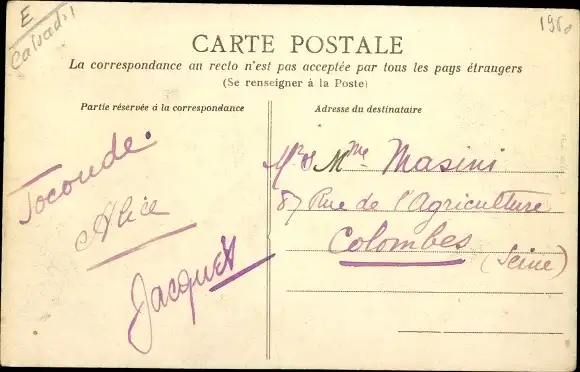 E
Calvados
CARTE POSTALE
La correspondance au recto n'est pas acceptée par tous les pays étrangers
(Se renseigner à la Poste)
Partie réservée à la correspondance
Joconde.
Alice
Jacques
Adresse du destinataire
Mr & Mme Masini
87 Rue de l'Agriculture
Colombes
(Seine)